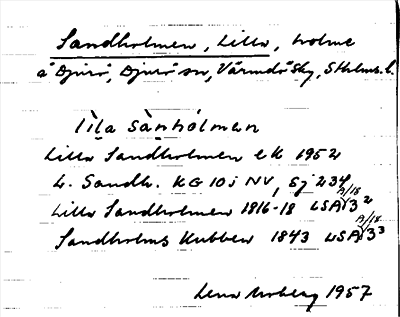 Sandholmen, Lilla, holme
å Djurö, Djurö sn, Värmdö skg, Sthlms l.
lìla sànhólmen
Lilla Sandholmen ek 1952
L. Sandh. KG 10i NV, Sj 234
Lilla Sandholmen 1816-18 LSA A/18 13²
Sandholms Kubben 1843 LSA A/18 13³
Lena Moberg 1957